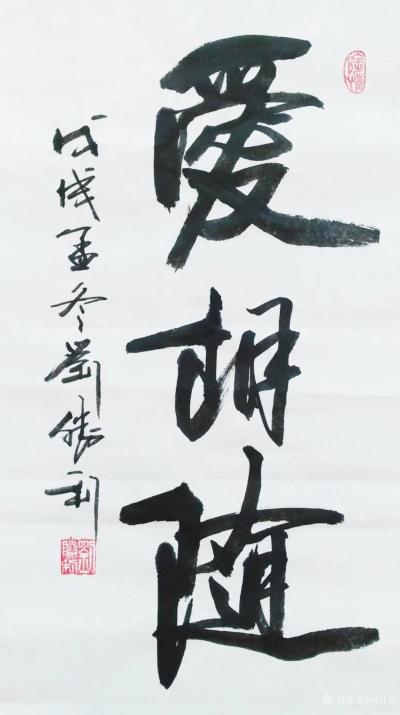 愛相随
戊戌孟冬劉勝利